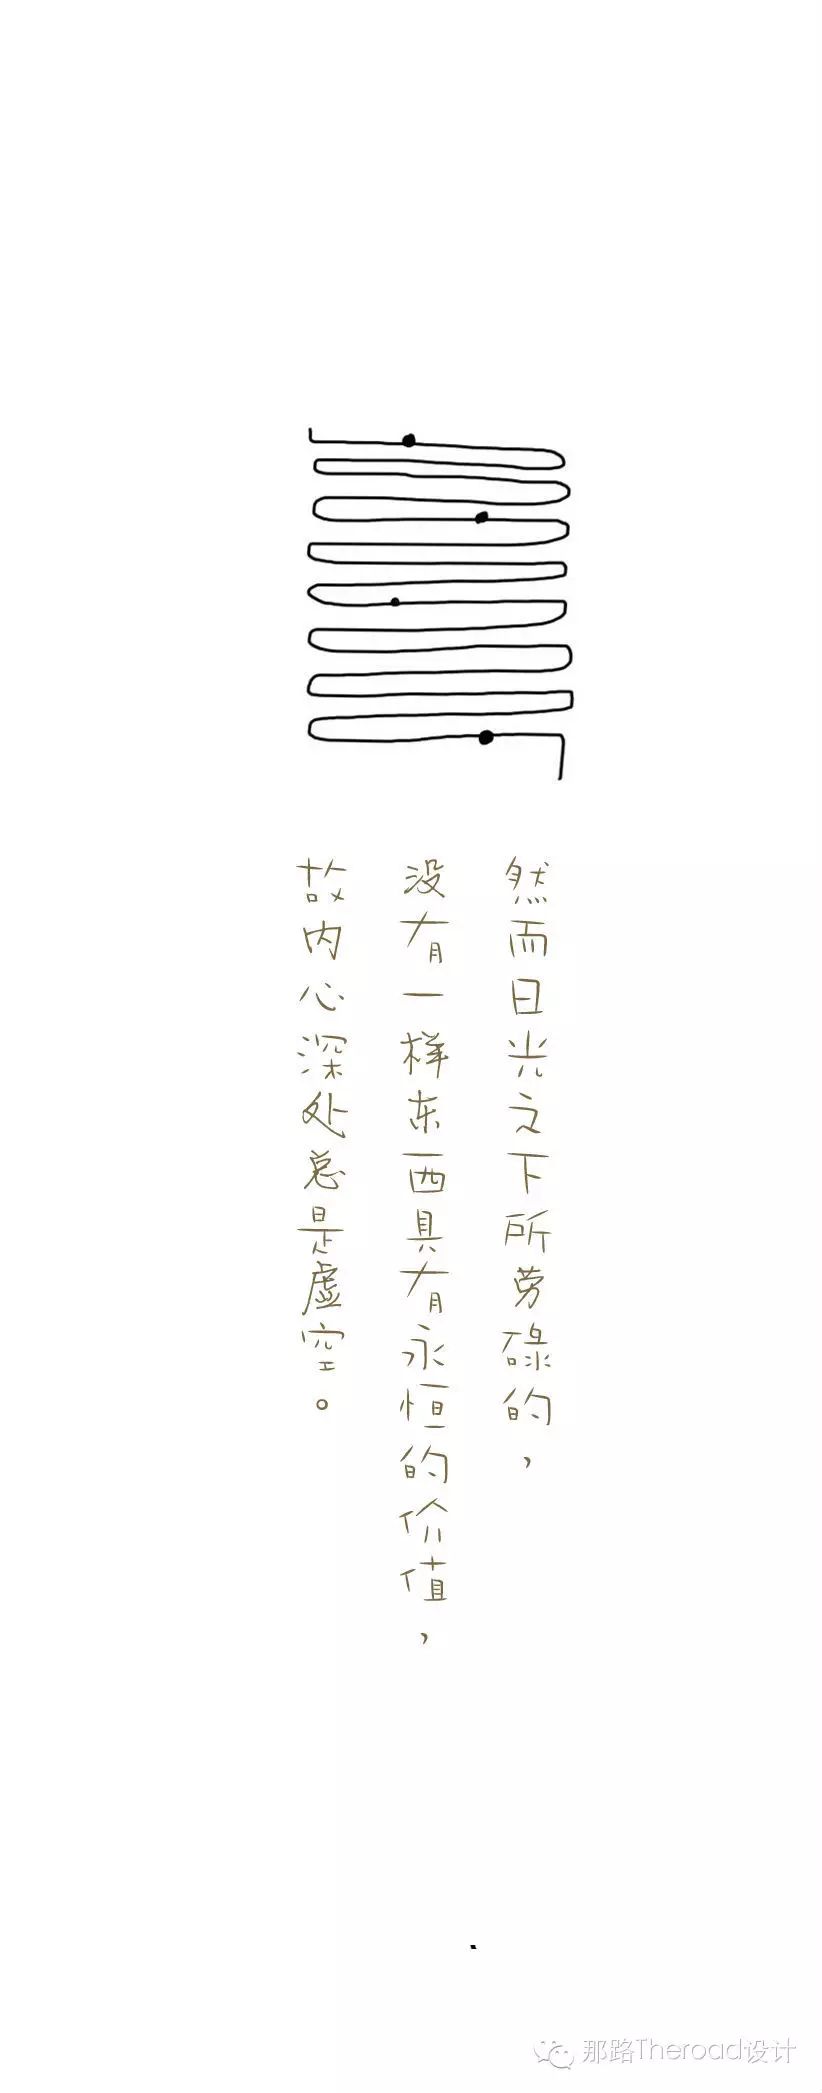 然而日光之下所劳碌的，
没有一样东西具有永恒的价值，
故内心深处总是虚空。
那路Theroad设计